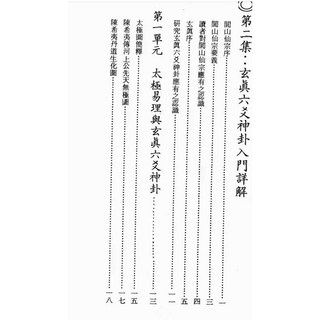 第二集:玄眞六爻神卦入門詳解
閭山仙宗序……一
閭山仙宗要義……三
讀者對閭山仙宗應有之認識……四
玄眞序……五
研究玄眞六爻神卦應有之認識……一一
第一單元 太極易理與玄眞六爻神卦……一三
太極圖簡釋……一五
陳希夷傳河上公先天無極圖……一七
陳希夷丹道生化圖……一八